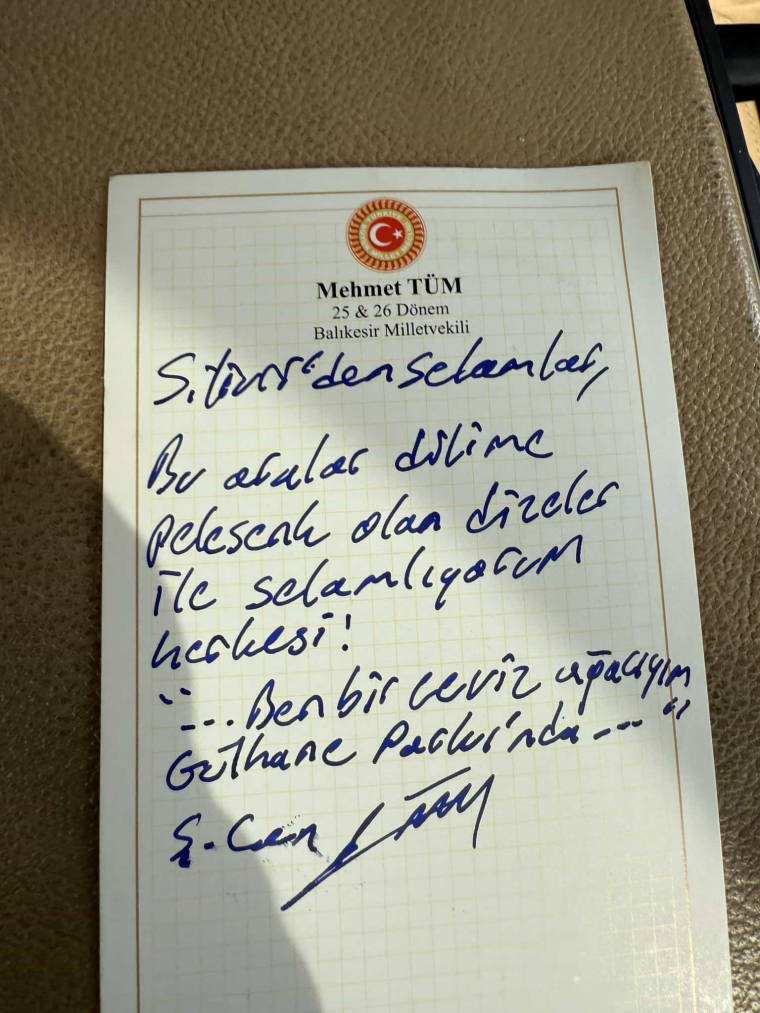 Mehmet TÜM
25 & 26 Dönem
Balıkesir Milletvekili
Silivri'den selamlar,
Bu aralar dilime
pelesenk olan dizeler
ile selamlıyorum
herkesi!
"... Ben bir ceviz ağacıyım
Gülhane Parkı'nda ... "
Ş. Can